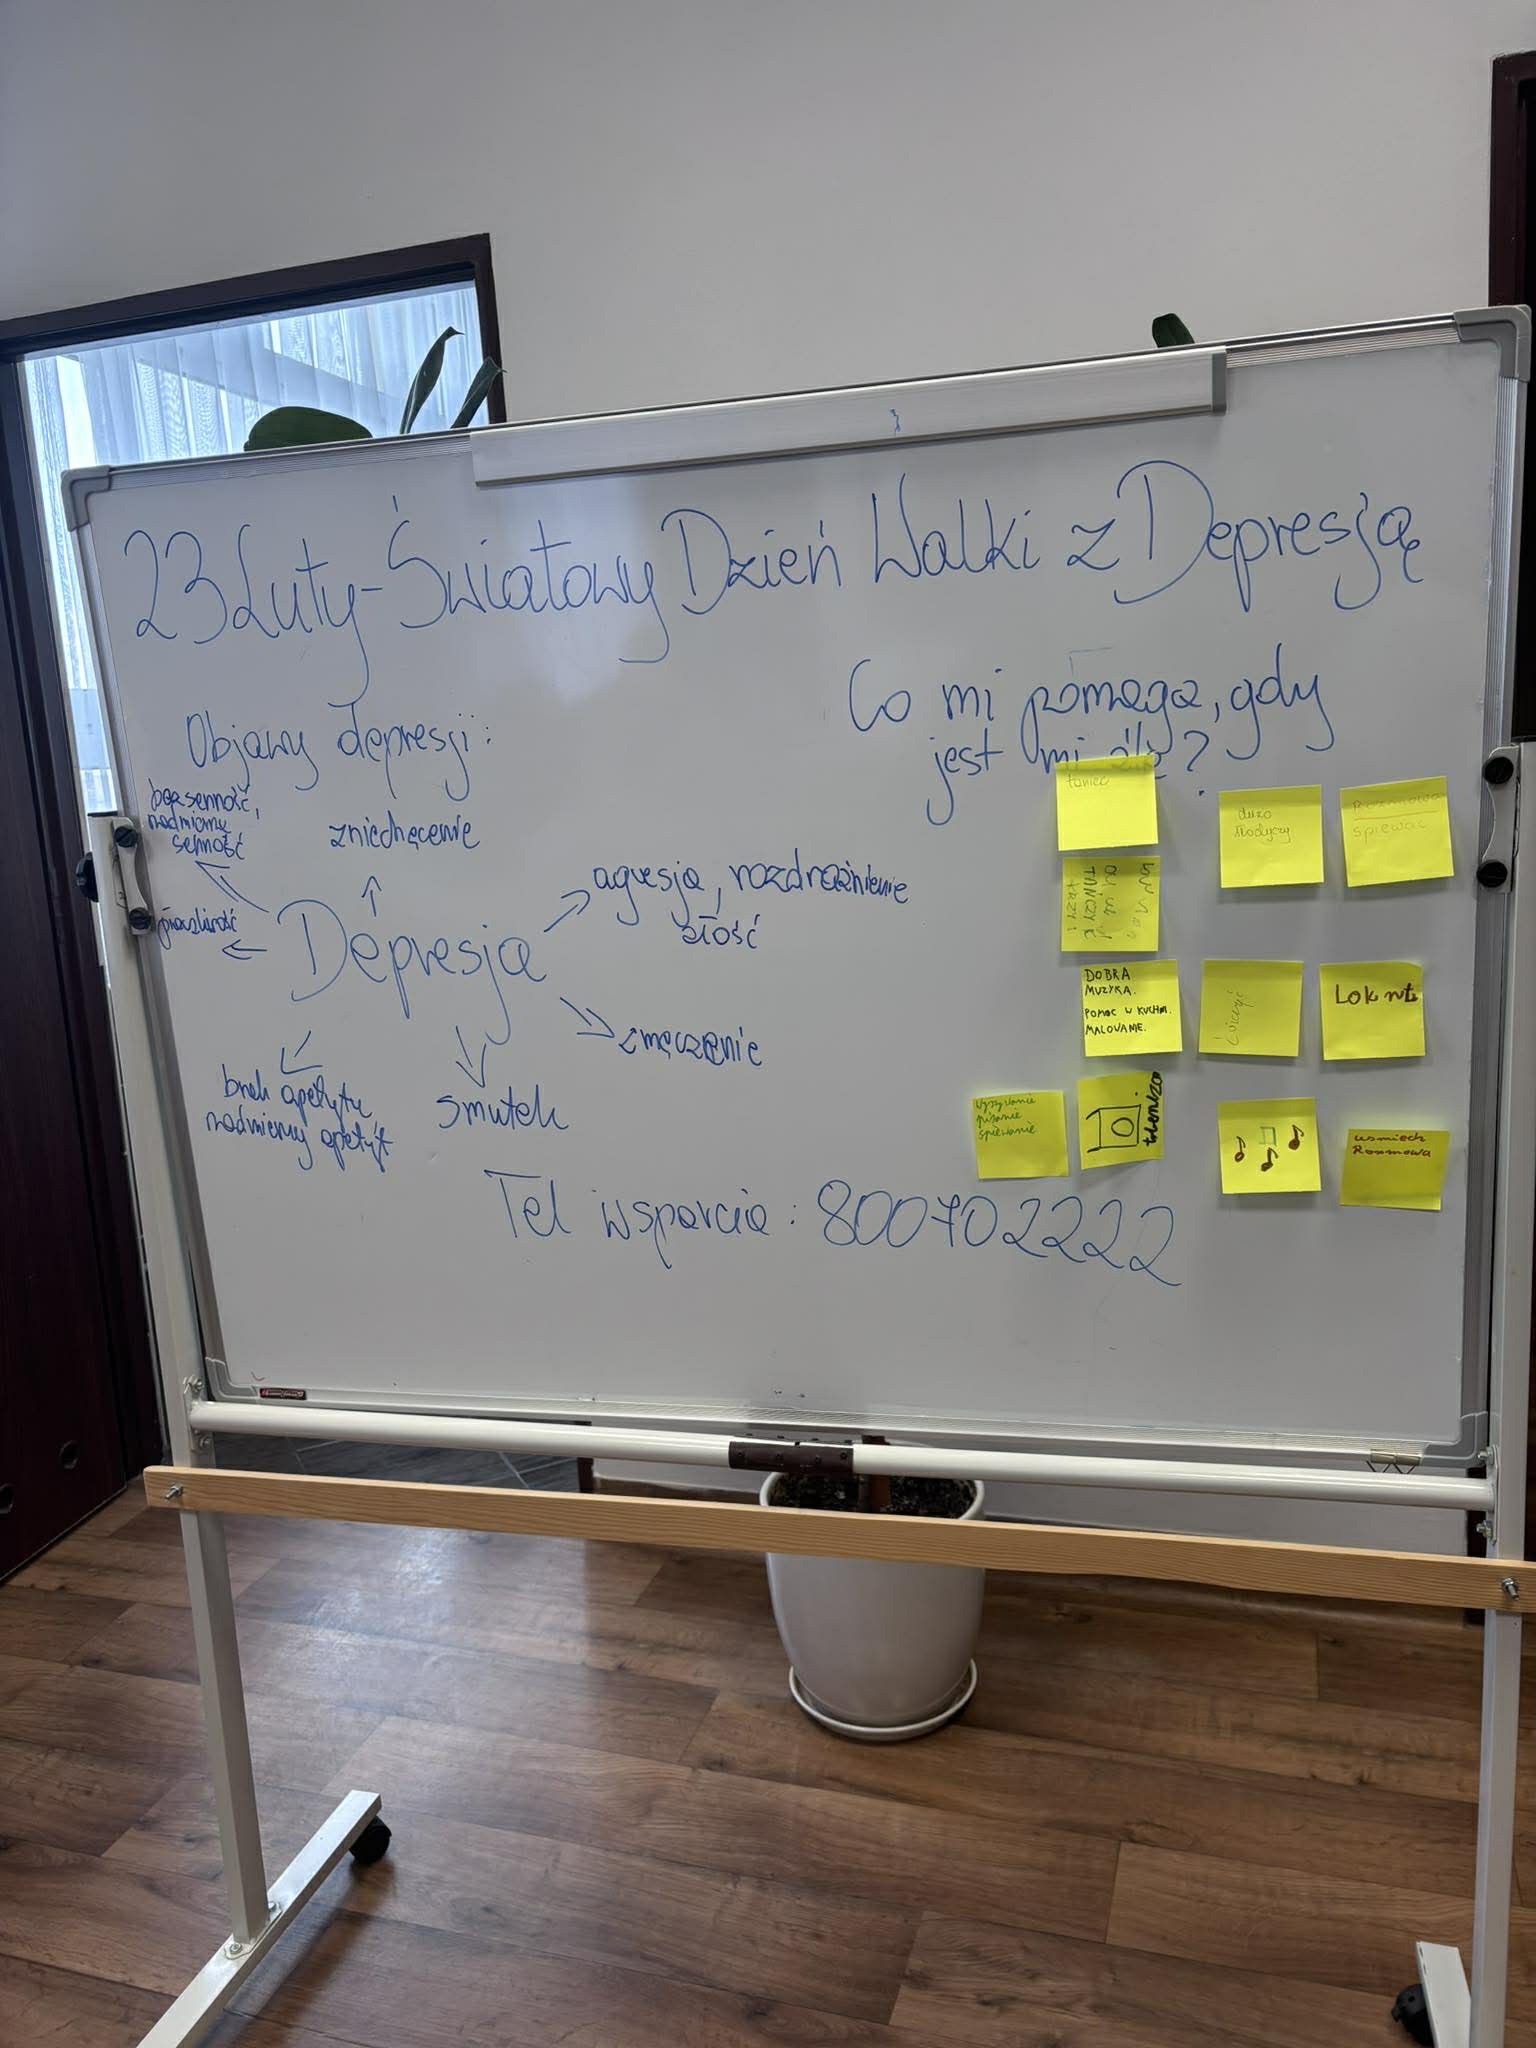 23 Luty - Światowy Dzień Walki z Depresją
Objawy depresji:
bezsenność,
nadmierna
senność
zniechęcenie
agresja, rozdrażnienie
złość
płaczliwość
Depresja
zmęczenie
brak apetytu
nadmierny apetyt
smutek
Co mi pomaga, gdy
jest mi źle?
taniec
dużo
słodyczy
Rozmowa
śpiewać
TAŃCZYĆ
DOBRA
MUZYKA.
POMOC W KUCHNI.
MALOWANIE.
ćwiczyć
pisanie
śpiewanie
uśmiech
Rozmowa
Tel wsparcia: 800702222